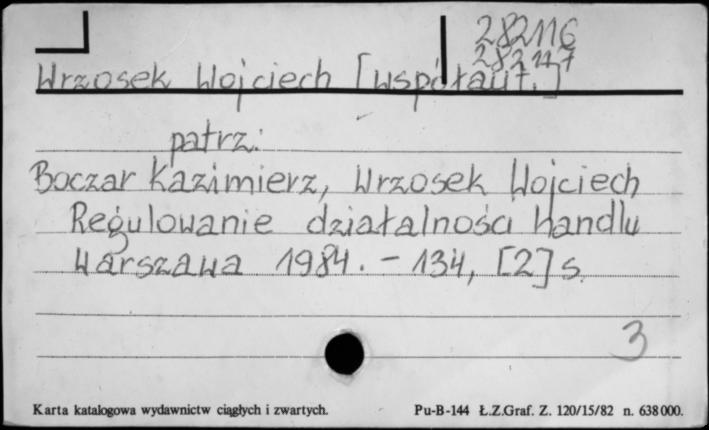 282116
282117
Wrzosek Wojciech [współaut.]
patrz:
Boczar Kazimierz, Wrzosek Wojciech
Regulowanie działalności handlu
Warszawa 1984. - 134, [2] s.
3
Karta katalogowa wydawnictw ciągłych i zwartych. Pu-B-144 Ł.Z.Graf. Z. 120/15/82 n. 638000.